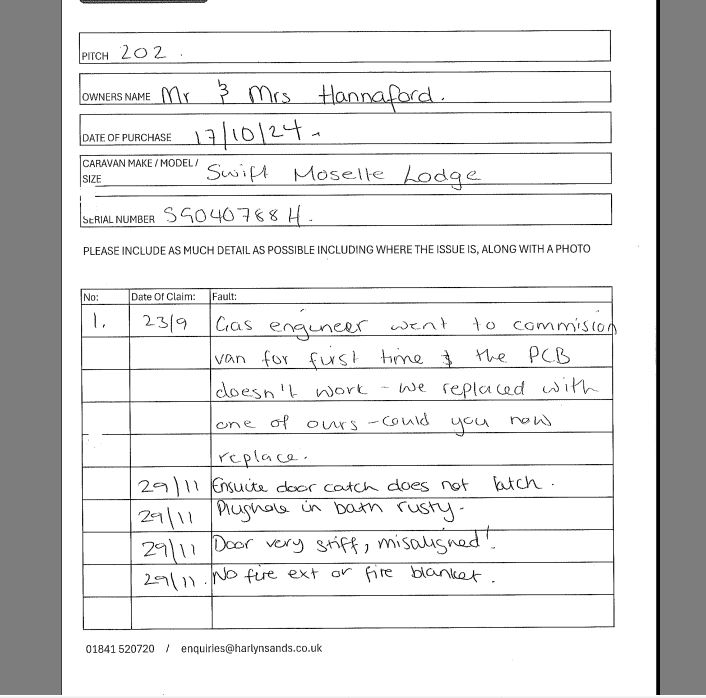 PITCH 202.
OWNERS NAME Mr & Mrs Hannaford.
DATE OF PURCHASE 17/10/24.
CARAVAN MAKE / MODEL /
SIZE Swift Moselle Lodge
SERIAL NUMBER SG040788H.
PLEASE INCLUDE AS MUCH DETAIL AS POSSIBLE INCLUDING WHERE THE ISSUE IS, ALONG WITH A PHOTO
No: Date Of Claim: Fault:
1. 23/9 Gas engineer went to commision
van for first time & the PCB
doesn't work - we replaced with
one of ours - could you now
replace.
29/11 Ensuite door catch does not latch.
29/11 Plughole in bath rusty.
29/11 Door very stiff, misaligned!
29/11. No fire ext or fire blanket.
01841 520720 / enquiries@harlynsands.co.uk